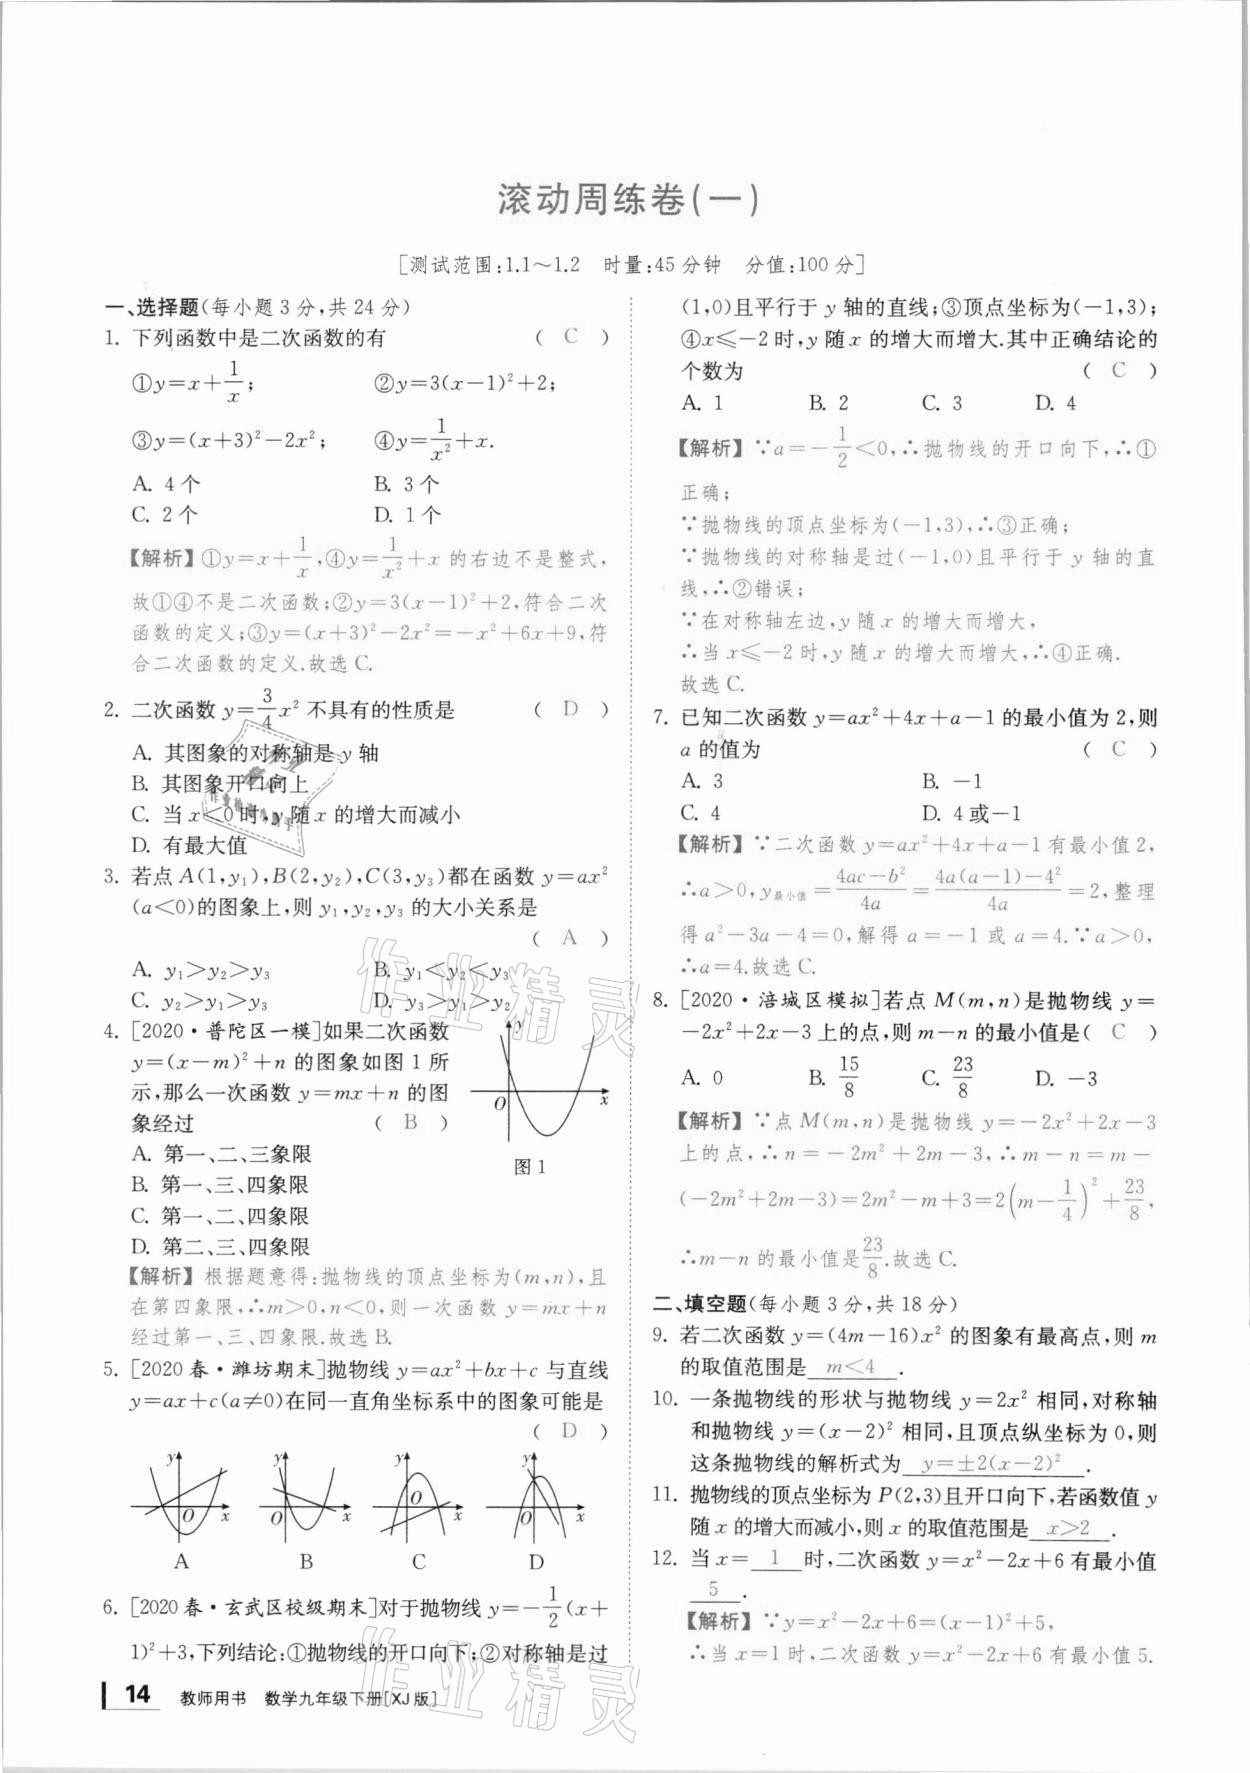 滚动周练卷(一)
[测试范围:1.1～1.2　时量:45分钟　分值:100分]
一、选择题(每小题3分,共24分)
1. 下列函数中是二次函数的有 ( C )
①y=x+1/x; ②y=3(x-1)²+2;
③y=(x+3)²-2x²; ④y=1/x²+x.
A. 4个 B. 3个
C. 2个 D. 1个
【解析】①y=x+1/x,④y=1/x²+x的右边不是整式,
故①④不是二次函数;②y=3(x-1)²+2,符合二次
函数的定义;③y=(x+3)²-2x²=-x²+6x+9,符
合二次函数的定义.故选C.
2. 二次函数y=3/4x²不具有的性质是 ( D )
A. 其图象的对称轴是y轴
B. 其图象开口向上
C. 当x<0时,y随x的增大而减小
D. 有最大值
3. 若点A(1,y₁),B(2,y₂),C(3,y₃)都在函数y=ax²
(a<0)的图象上,则y₁,y₂,y₃的大小关系是
( A )
A. y₁>y₂>y₃ B. y₁<y₂<y₃
C. y₂>y₁>y₃ D. y₃>y₁>y₂
4. [2020·普陀区一模]如果二次函数
y=(x-m)²+n的图象如图1所
示,那么一次函数y=mx+n的图
象经过 ( B )
A. 第一、二、三象限
B. 第一、三、四象限
C. 第一、二、四象限
D. 第二、三、四象限
y
O x
图1
【解析】根据题意得:抛物线的顶点坐标为(m,n),且
在第四象限,∴m>0,n<0,则一次函数y=mx+n
经过第一、三、四象限.故选B.
5. [2020春·潍坊期末]抛物线y=ax²+bx+c与直线
y=ax+c(a≠0)在同一直角坐标系中的图象可能是
( D )
y y y y
O x O x O x O x
A B C D
6. [2020春·玄武区校级期末]对于抛物线y=-1/2(x+
1)²+3,下列结论:①抛物线的开口向下;②对称轴是过
(1,0)且平行于y轴的直线;③顶点坐标为(-1,3);
④x≤-2时,y随x的增大而增大.其中正确结论的
个数为 ( C )
A. 1 B. 2 C. 3 D. 4
【解析】∵a=-1/2<0,∴抛物线的开口向下,∴①
正确;
∵抛物线的顶点坐标为(-1,3),∴③正确;
∵抛物线的对称轴是过(-1,0)且平行于y轴的直
线,∴②错误;
∵在对称轴左边,y随x的增大而增大,
∴当x≤-2时,y随x的增大而增大,∴④正确.
故选C.
7. 已知二次函数y=ax²+4x+a-1的最小值为2,则
a的值为 ( C )
A. 3 B. -1
C. 4 D. 4或-1
【解析】∵二次函数y=ax²+4x+a-1有最小值2,
∴a>0,y最小值=(4ac-b²)/4a=(4a(a-1)-4²)/4a=2,整理
得a²-3a-4=0,解得a=-1或a=4.∵a>0,
∴a=4.故选C.
8. [2020·涪城区模拟]若点M(m,n)是抛物线y=
-2x²+2x-3上的点,则m-n的最小值是( C )
A. 0 B. 15/8 C. 23/8 D. -3
【解析】∵点M(m,n)是抛物线y=-2x²+2x-3
上的点,∴n=-2m²+2m-3,∴m-n=m-
(-2m²+2m-3)=2m²-m+3=2(m-1/4)²+23/8,
∴m-n的最小值是23/8.故选C.
二、填空题(每小题3分,共18分)
9. 若二次函数y=(4m-16)x²的图象有最高点,则m
的取值范围是 m<4 .
10. 一条抛物线的形状与抛物线y=2x²相同,对称轴
和抛物线y=(x-2)²相同,且顶点纵坐标为0,则
这条抛物线的解析式为 y=±2(x-2)² .
11. 抛物线的顶点坐标为P(2,3)且开口向下,若函数值y
随x的增大而减小,则x的取值范围是 x>2 .
12. 当x= 1 时,二次函数y=x²-2x+6有最小值
5 .
【解析】∵y=x²-2x+6=(x-1)²+5,
∴当x=1时,二次函数y=x²-2x+6有最小值5.
14 教师用书 数学九年级下册[XJ版]
作业精灵
作业精灵